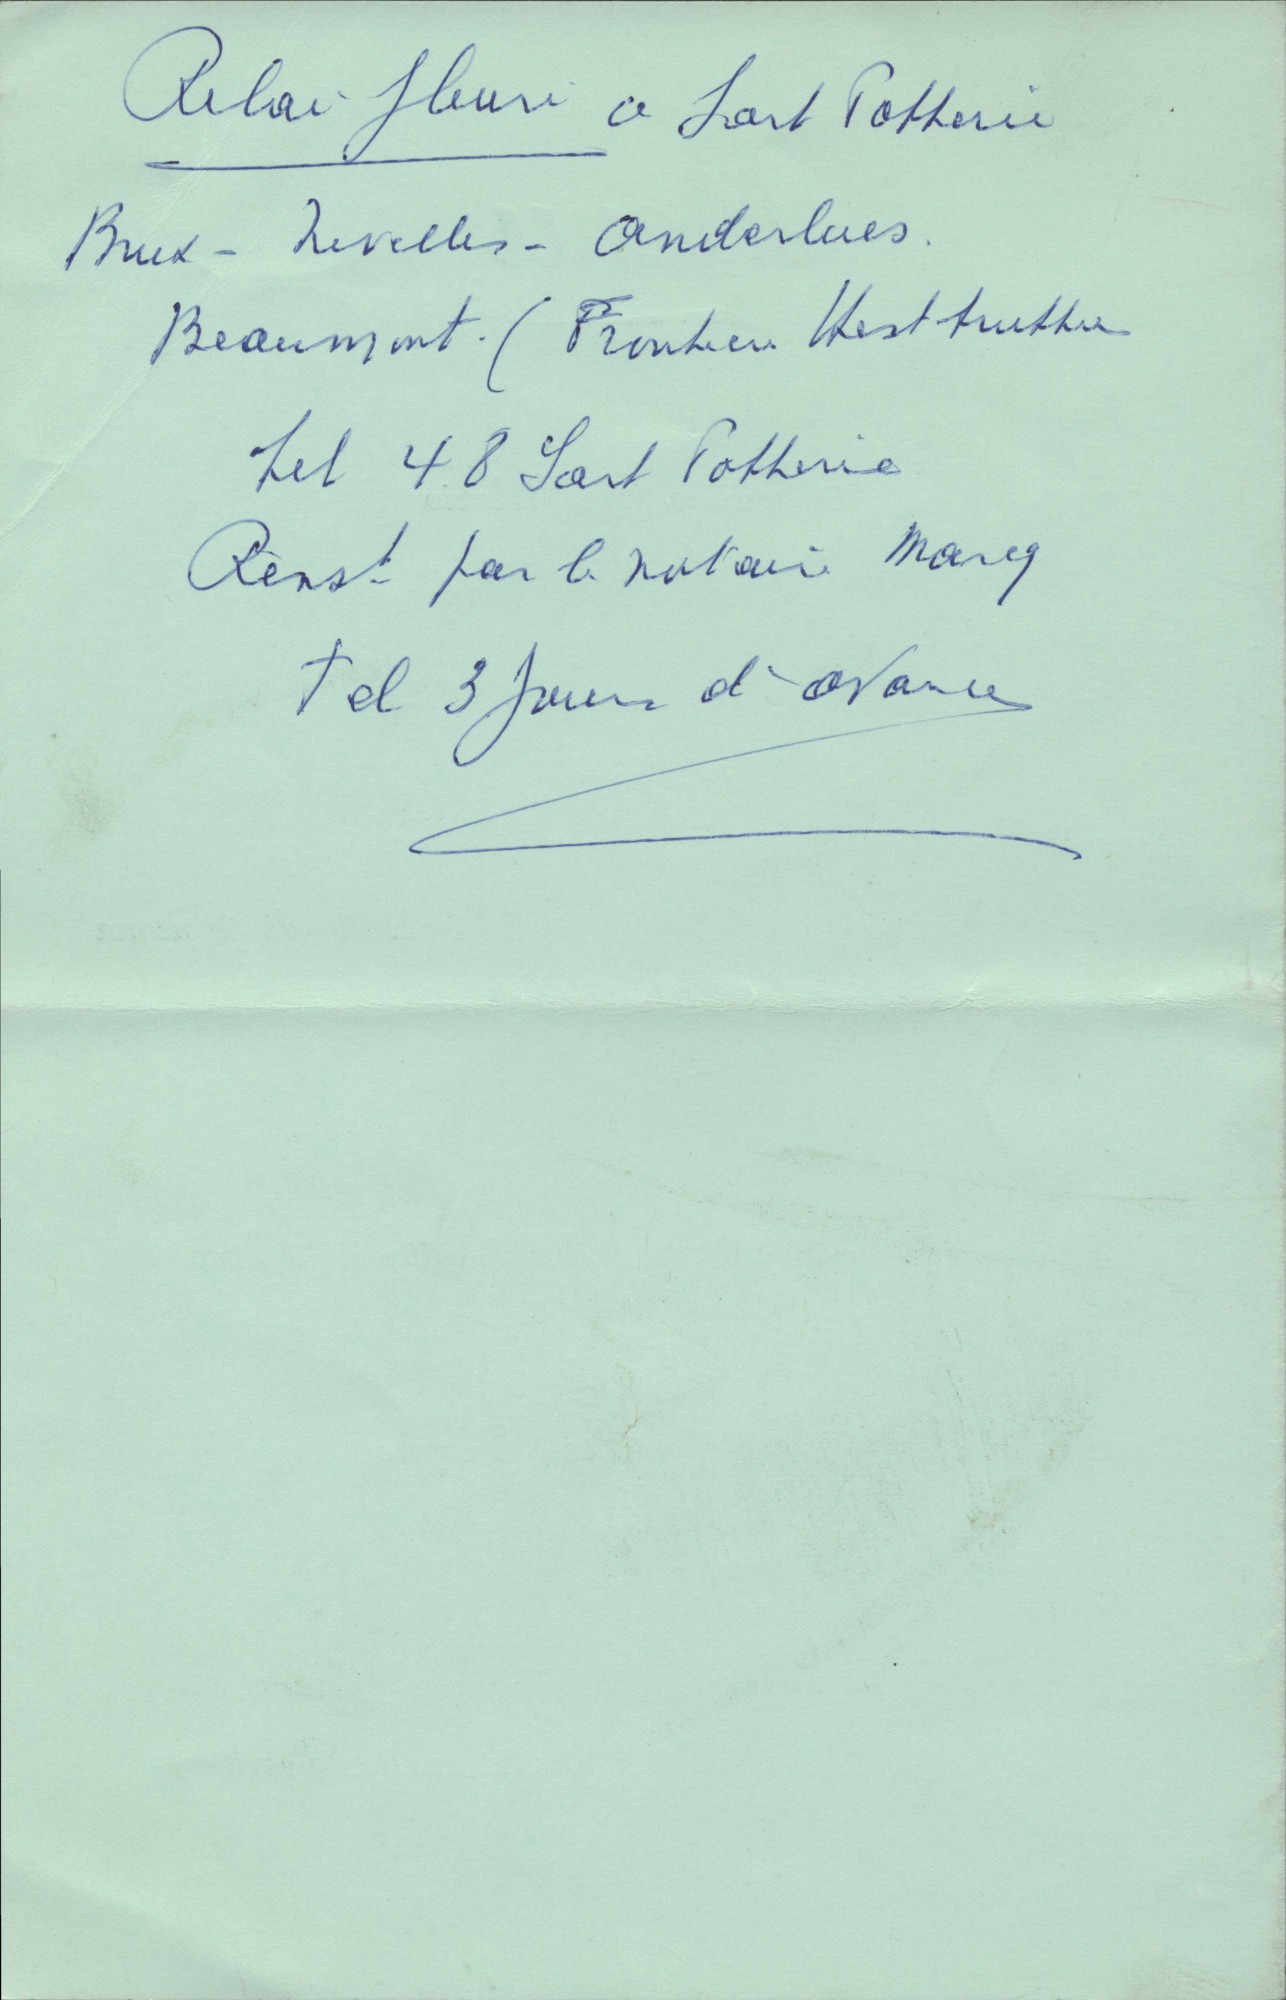 Relai fleuri a Sart Potterie
Brux - Nivelles - Anderlues.
Beaumont. ( Frontiere
tel 48 Sart Potterie
Renst par le notaire Marcq
Tel 3 jours d'avance